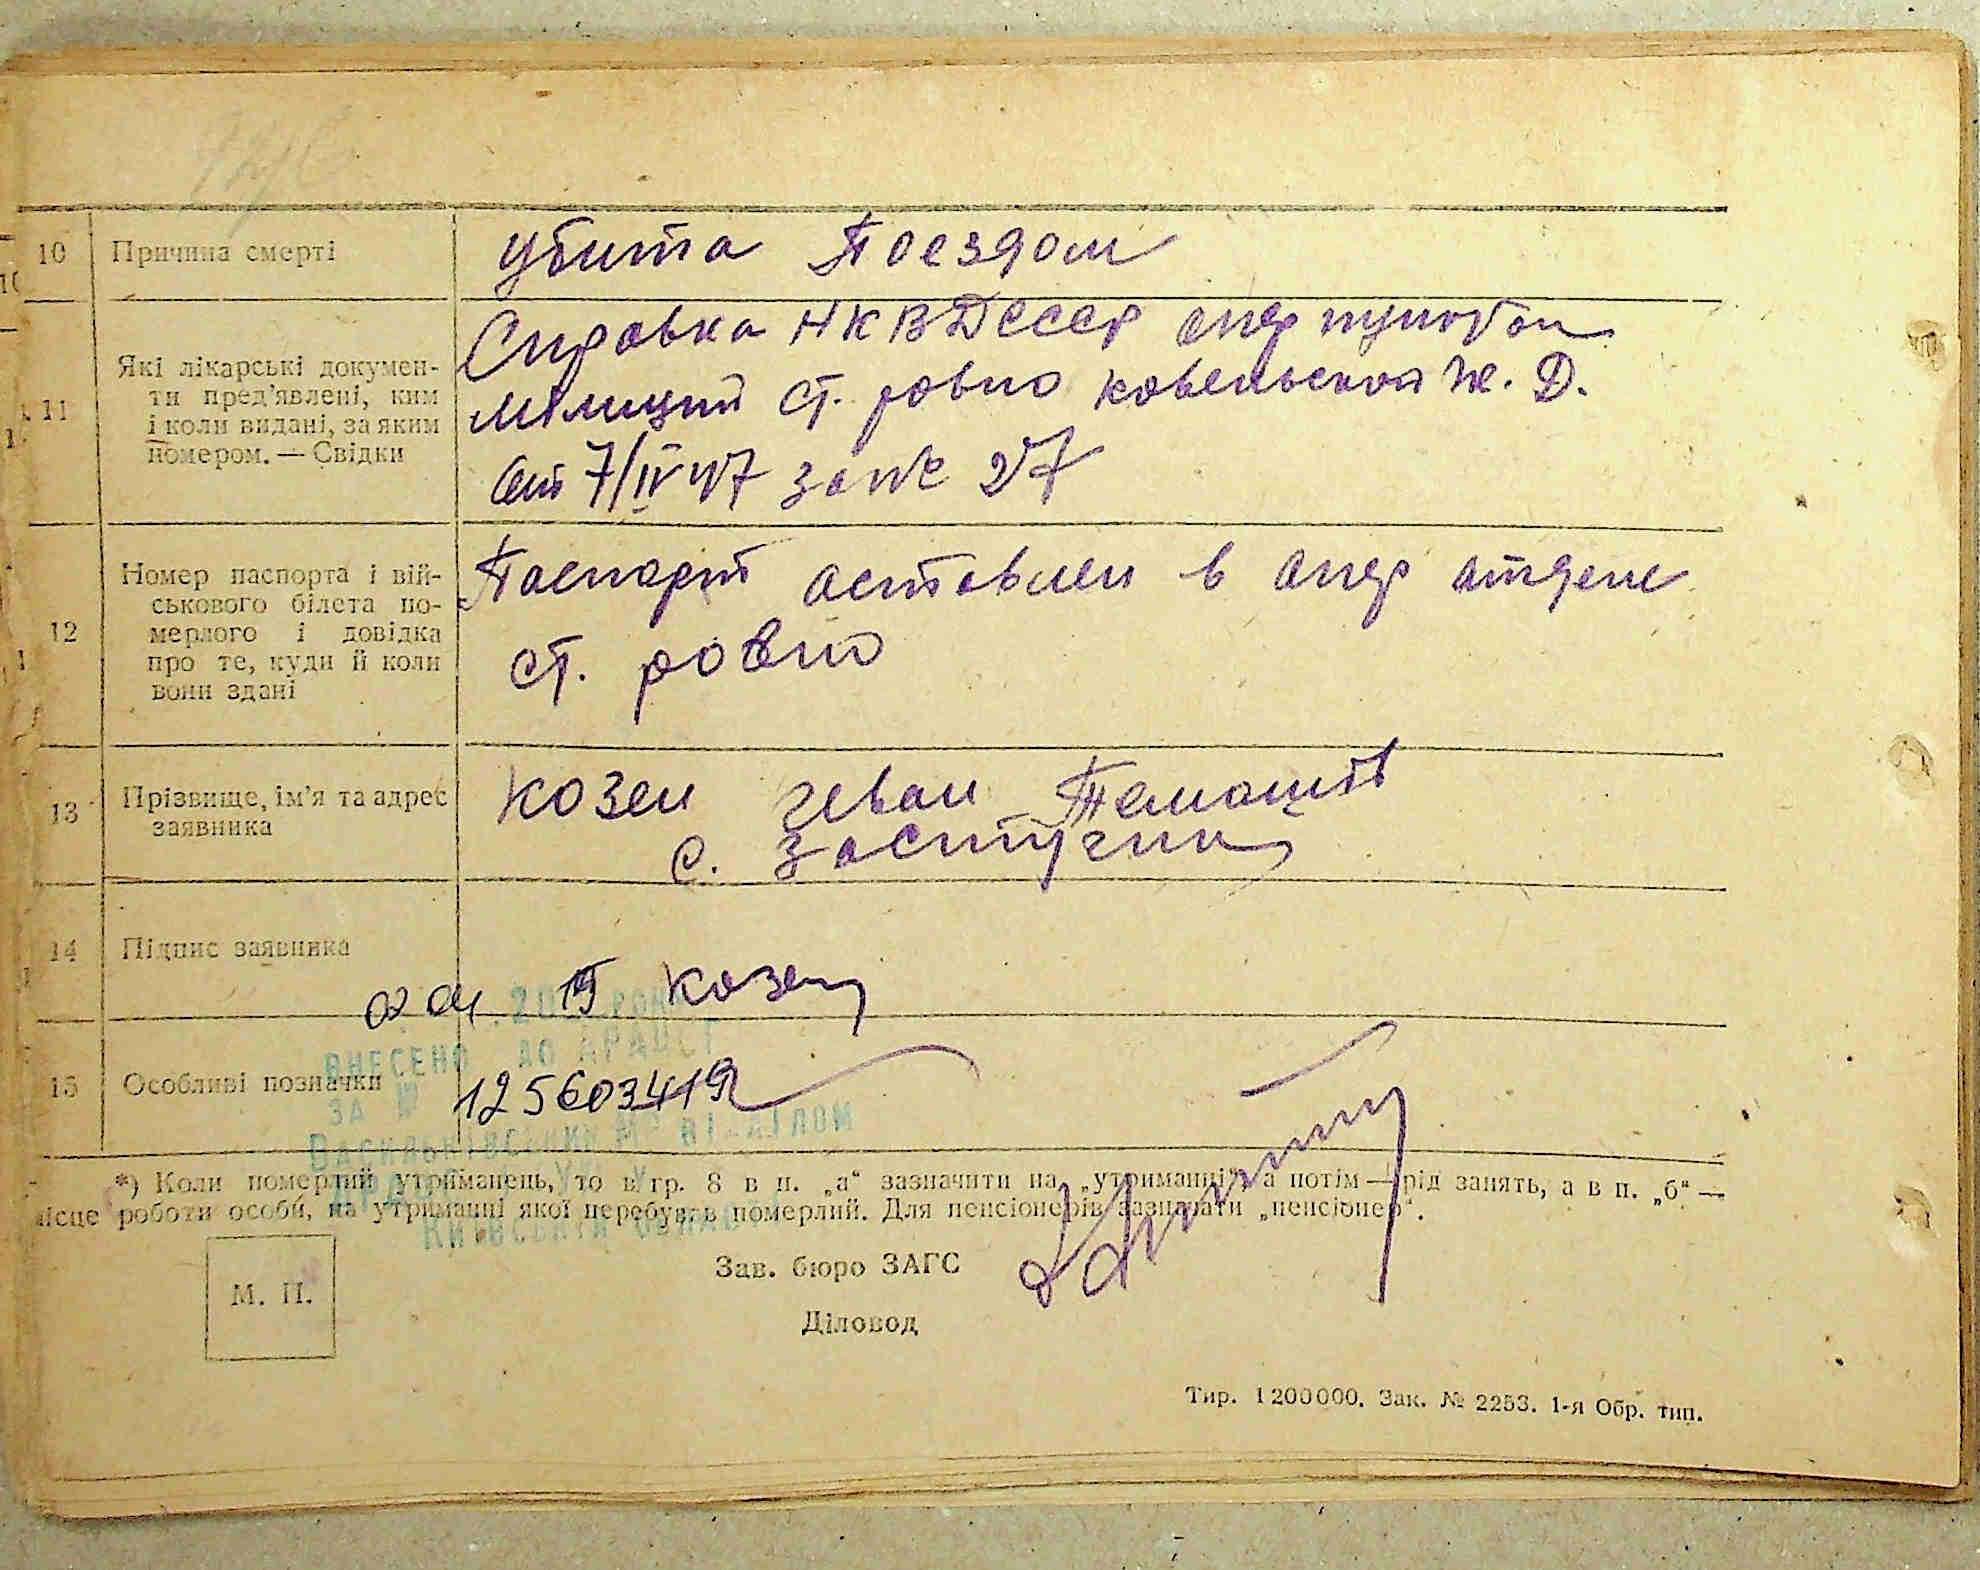 10 Причина смерті убита Поездом
11 Які лікарські докумен-
ти пред'явлені, ким
і коли видані, за яким
номером. — Свідки
Справка НКВДСССР опер
Мілиции ст. ровно ковельской Ж. Д.
От 7/IV 47 за № 27
12 Номер паспорта і вій-
ськового білета по-
мерлого і довідка
про те, куди й коли
вони здані
Паспорт оставлен в опер отделе
ст. ровно
13 Прізвище, ім'я та адрес
заявника
козен
с.
14 Підпис заявника
02 04 19 козен
20 РОК
ВНЕСЕНО ДО ДРАЦСГ
15 Особливі позначки
ЗА № 12560341
ВАСИЛЬКІВСЬКИМ МР ВІДДІЛОМ
*) Коли померлий утриманець, то в гр. 8 в п. „а“ зазначити на „утриманні“, а потім — рід занять, а в п. „б“ —
місце роботи особи, на утриманні якої перебував померлий. Для пенсіонерів зазначати „пенсіонер“.
КИЇВСЬКІЙ ОБЛАСТІ
М. П.
Зав. бюро ЗАГС
Діловод
Тир. 1 200 000. Зак. № 2253. 1-я Обр. тип.